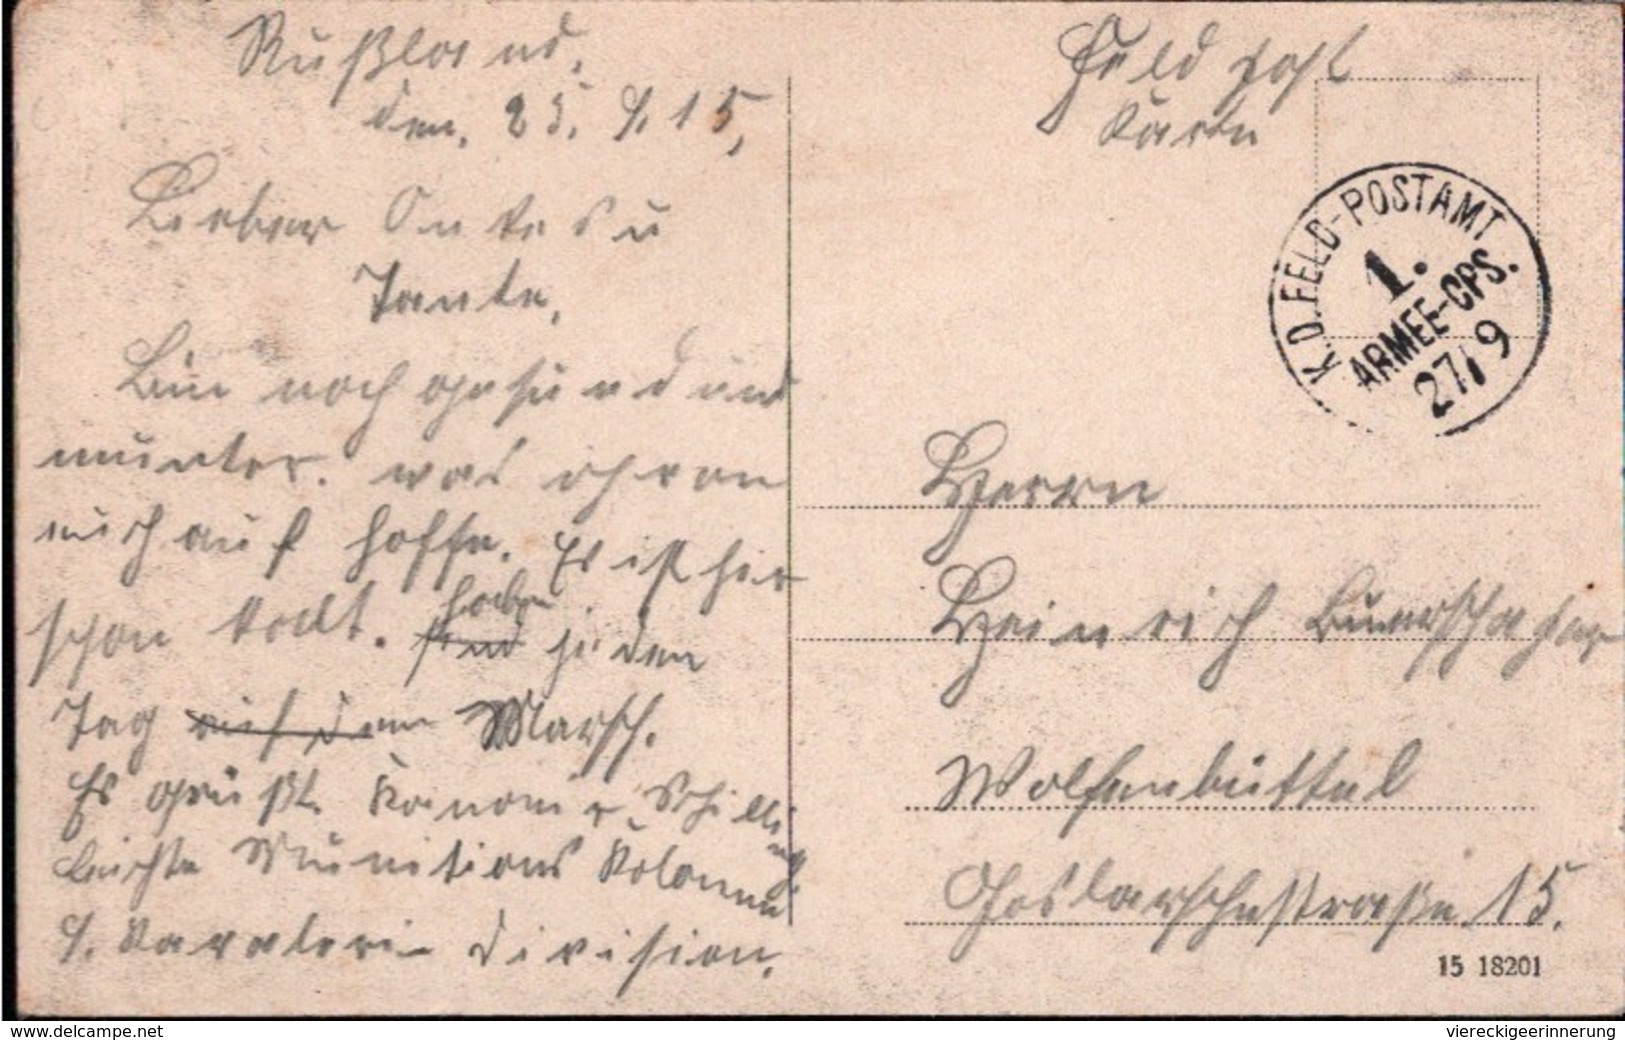 Rußland,
den. 25. 9. 15,
Lieber Onkel u
Tante,
Bin noch gesund und
munter. was ich von
euch auch hoffe. Es ist hir
schon kallt. haben
sind jeden
Tag Marsch.
Es grüßt. Kanonier Schilling.
Leichte Munitions Kolonne
9. Kavalerie Division.
Feldpost
Karte
K.D.FELD-POSTAMT
1.
ARMEE-CPS.
27/9
Herrn
Heinrich
Wolfenbüttel
Goslarschestraße 15.
15 18201
www.delcampe.net
viereckigeerinnerung